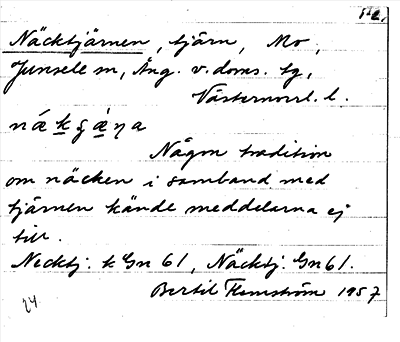 Näcktjärnen, tjärn, Mo,
Junsele sn, Ång. v. doms. tg,
Västernorrl. l.
Någon tradition
om näcken i samband med
tjärnen kände meddelarna ej
till.
Necktj: k Gn 61, Näcktj: Gn 61.
Bertil Flemström 1957
24